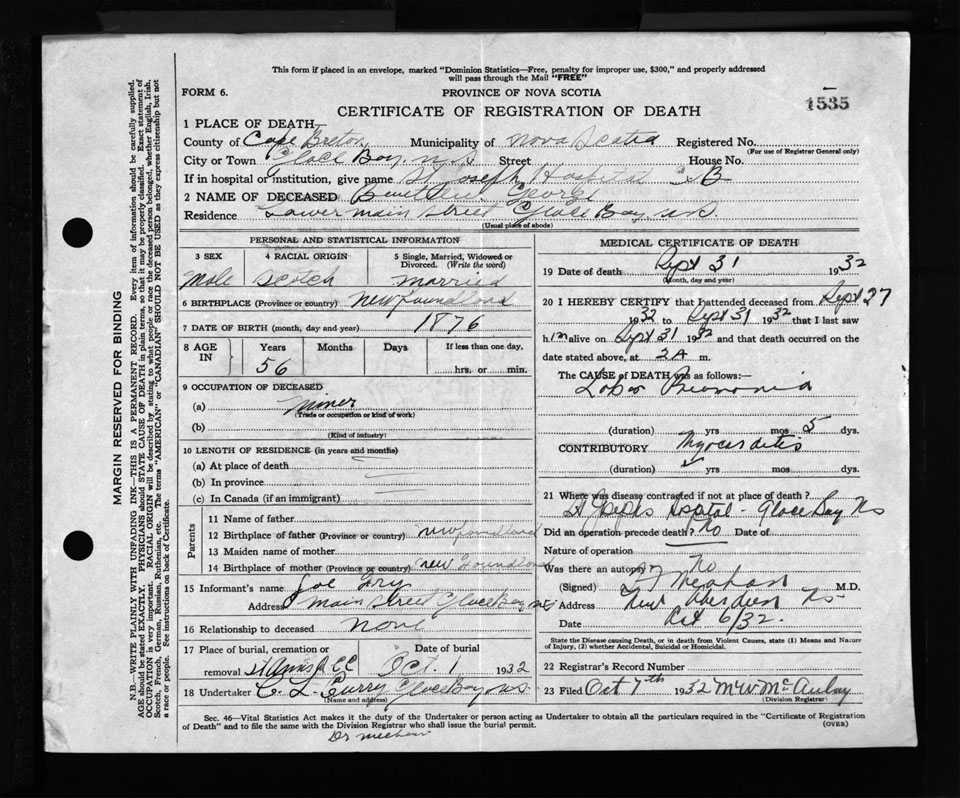 This form if placed in an envelope, marked "Dominion Statistics—Free, penalty for improper use, $300," and properly addressed
will pass through the Mail "FREE"
FORM 6.
PROVINCE OF NOVA SCOTIA
1535
CERTIFICATE OF REGISTRATION OF DEATH
1 PLACE OF DEATH—
County of Cape Breton Municipality of Nova Scotia Registered No.
(For use of Registrar General only)
City or Town Glace Bay, N.S. Street House No.
If in hospital or institution, give name St Joseph Hospital
2 NAME OF DECEASED George
Residence Lower Main Street Glace Bay, N.S.
(Usual place of abode)
PERSONAL AND STATISTICAL INFORMATION
3 SEX 4 RACIAL ORIGIN 5 Single, Married, Widowed or
Divorced. (Write the word)
Male Scotch Married
6 BIRTHPLACE (Province or country) Newfoundland
7 DATE OF BIRTH (month, day and year) 1876
8 AGE IN Years Months Days If less than one day,
56 hrs. or min.
9 OCCUPATION OF DECEASED
(a) Miner
(Trade or occupation or kind of work)
(b)
(Kind of industry)
10 LENGTH OF RESIDENCE (in years and months)
(a) At place of death
(b) In province
(c) In Canada (if an immigrant)
Parents
11 Name of father
12 Birthplace of father (Province or country) Newfoundland
13 Maiden name of mother
14 Birthplace of mother (Province or country) New Foundland
15 Informant's name Joe
Address Main Street Glace Bay NS
16 Relationship to deceased None
17 Place of burial, cremation or Date of burial
removal St Anns Oct. 1 1932
18 Undertaker C. L. Curry Glace Bay N.S.
(Name and address)
MEDICAL CERTIFICATE OF DEATH
19 Date of death Sept 31 1932
(Month, day and year)
20 I HEREBY CERTIFY that I attended deceased from Sept 27
1932 to Sept 31 1932 that I last saw
him alive on Sept 31 1932 and that death occurred on the
date stated above, at 3A m.
The CAUSE OF DEATH was as follows:—
Lobar Pneumonia
(duration) yrs mos 5 dys.
CONTRIBUTORY Myocarditis
(duration) yrs mos dys.
21 Where was disease contracted if not at place of death?
St Josephs Hospital - Glace Bay NS
Did an operation precede death? No Date of
Nature of operation
Was there an autopsy? No
(Signed) Meehan M.D.
Address New Aberdeen NS
Date Oct 6/32.
State the Disease causing Death, or in death from Violent Causes, state (1) Means and Nature
of Injury, (2) whether Accidental, Suicidal or Homicidal.
22 Registrar's Record Number
23 Filed Oct 7th 1932 McAulay
(Division Registrar)
Sec. 46—Vital Statistics Act makes it the duty of the Undertaker or person acting as Undertaker to obtain all the particulars required in the "Certificate of Registration
of Death" and to file the same with the Division Registrar who shall issue the burial permit. (OVER)
Dr Meehan
MARGIN RESERVED FOR BINDING
N.B.—WRITE PLAINLY WITH UNFADING INK—THIS IS A PERMANENT RECORD. Every item of information should be carefully supplied.
AGE should be stated EXACTLY. PHYSICIANS should STATE CAUSE OF DEATH in plain terms, so that it may be properly classified. Exact statement of
OCCUPATION is very important. RACIAL ORIGIN will be described by stating to what people or race the deceased person belonged, whether English, Irish,
Scotch, French, German, Russian, Ruthenian, etc. The terms "AMERICAN" or "CANADIAN" SHOULD NOT BE USED as they express citizenship but not
a race or people. See instructions on back of Certificate.